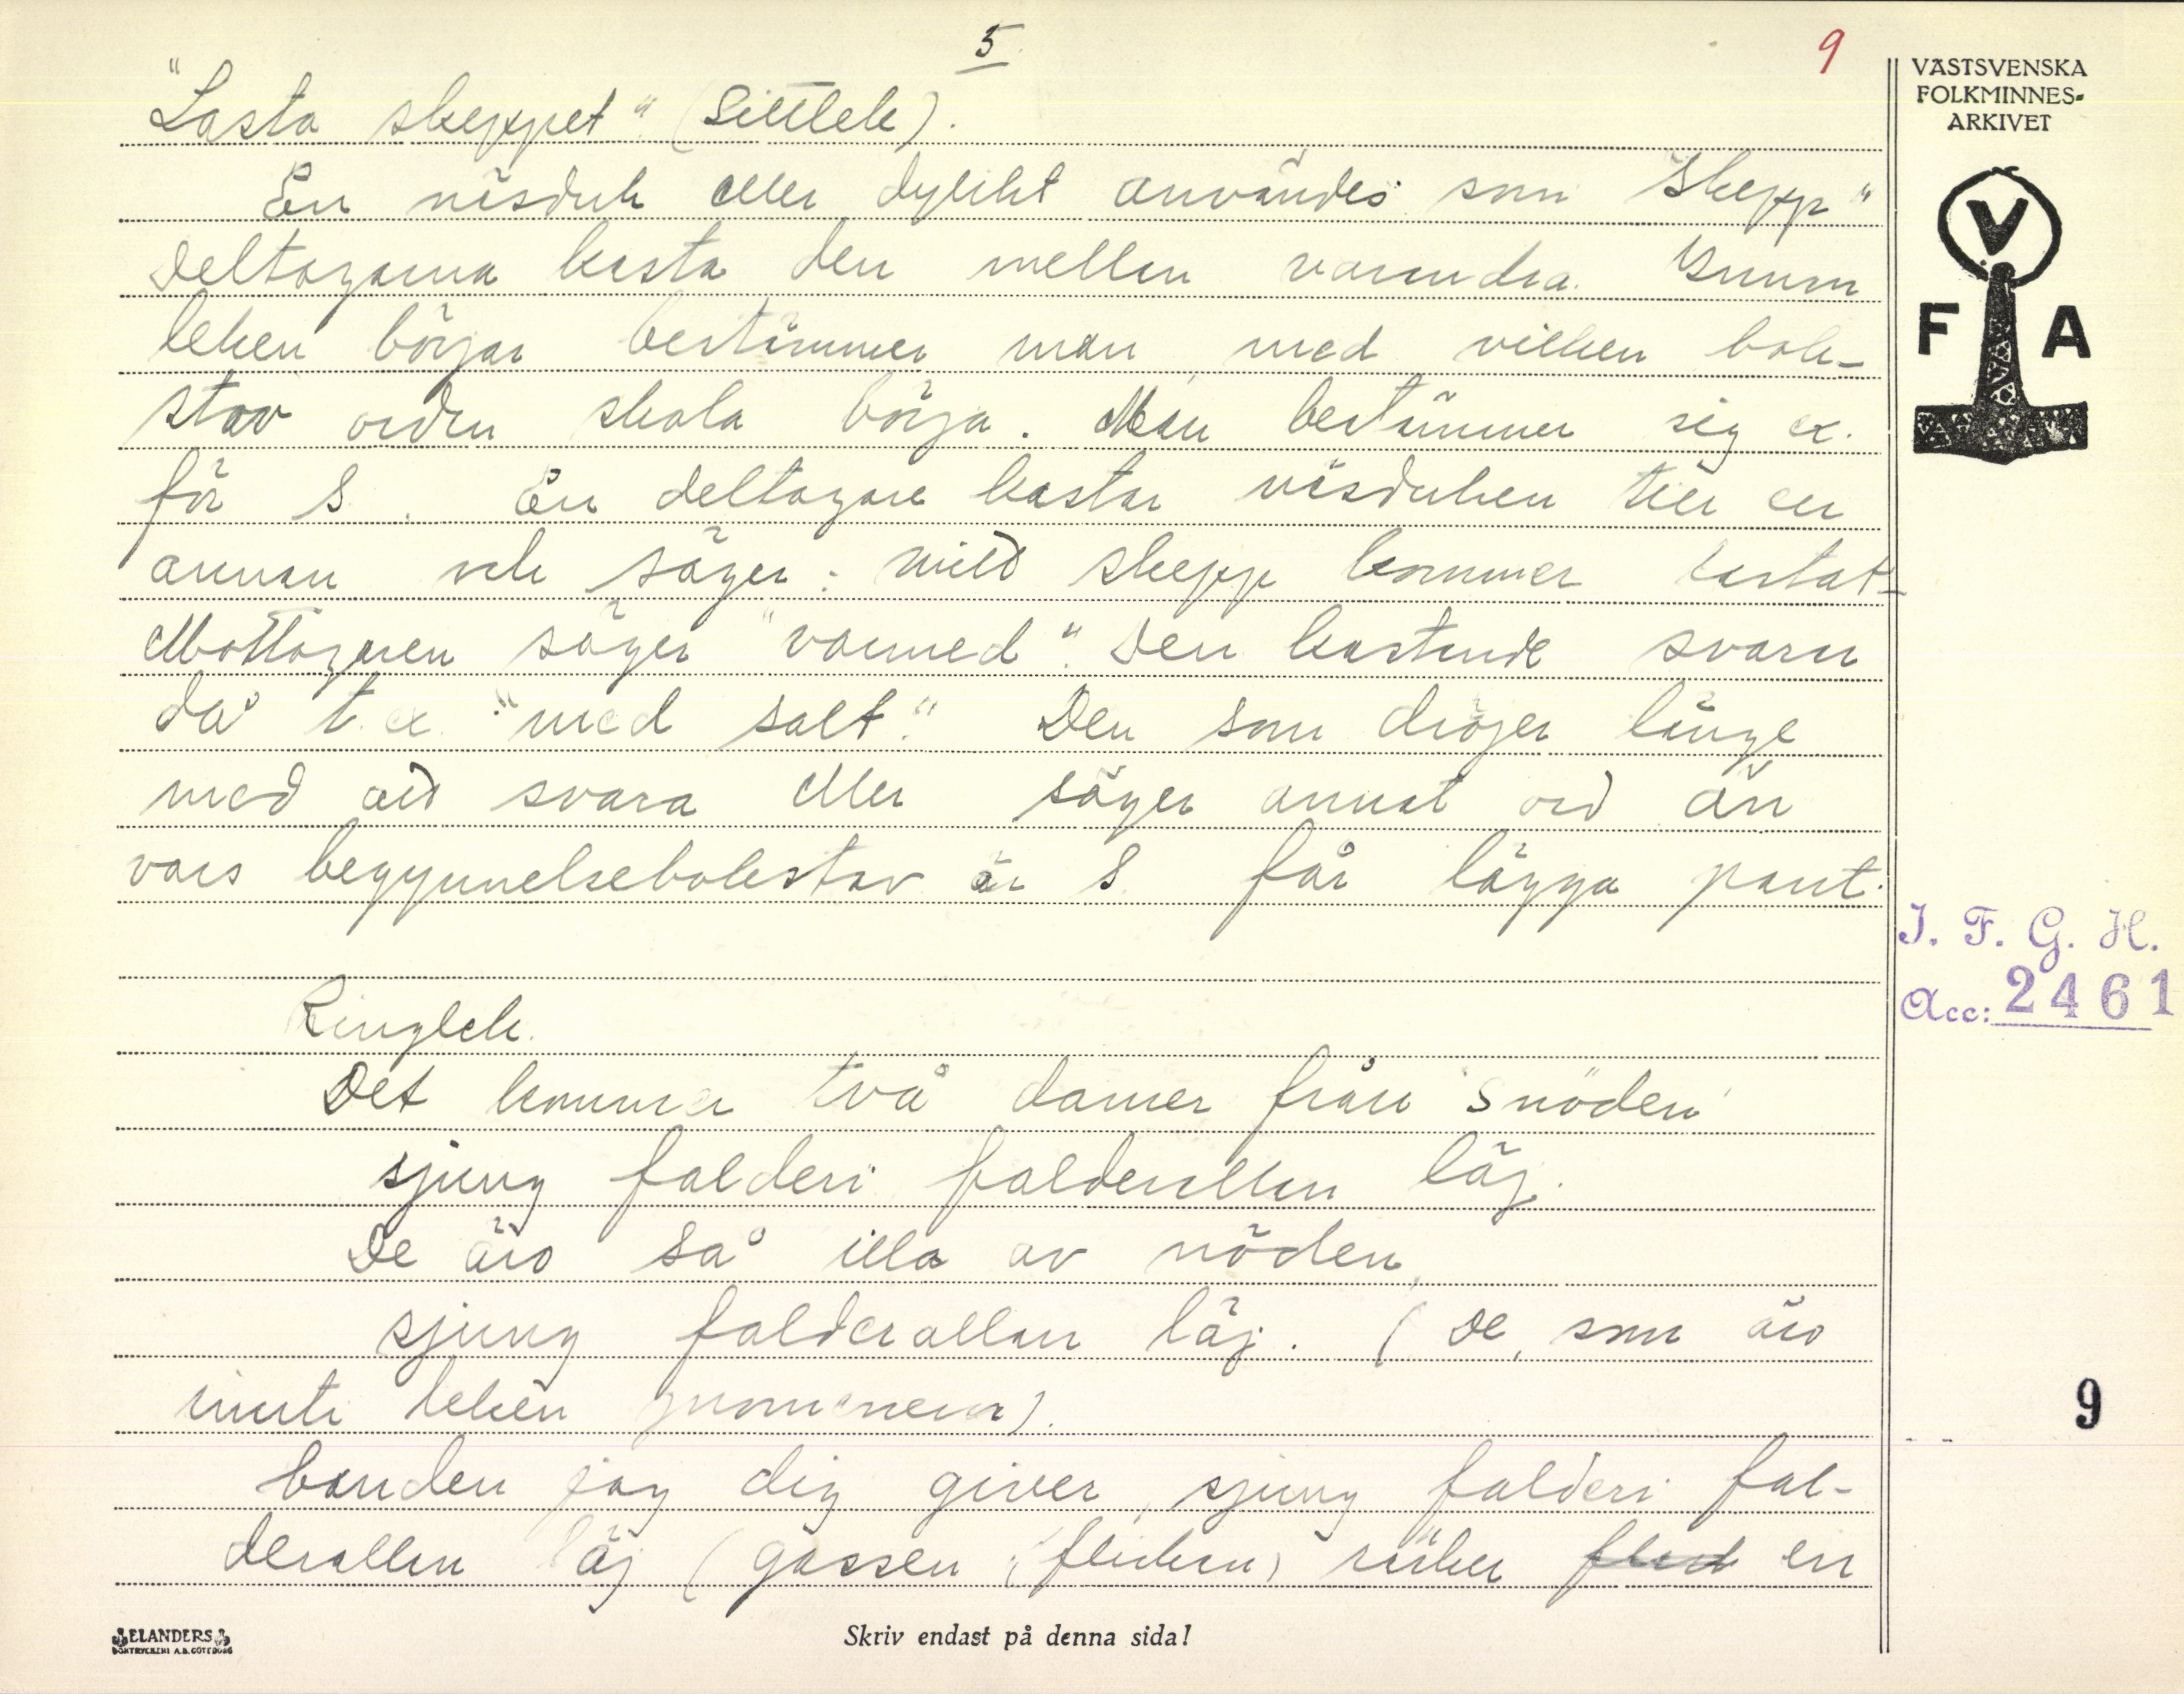 5
9
"Lasta skeppet" (Sittlek).
En näsduk eller dylikt användes som "Skepp"
Deltagarna kasta den mellan varandra. Innan
leken börjar bestämmer man med vilken bok-
stav orden skola börja. Man bestämmer sig ex.
för S. En deltagare kastar näsduken till en
annan och säger: mitt skepp kommer lastat-
Mottagaren säger "varmed". Den kastande svarar
då t. ex. "med salt." Den som dröjer länge
med att svara eller säger annat ord än
vars begynnelsebokstav är S får lägga pant.
Ringlek.
Det kommer två damer från "Snöden"
sjung falderi falderallan läj.
De äro så illa av nöden,
sjung falderallan läj. (De, som äro
inuti leken
handen jag dig giver, sjung falderi fal-
derallan läj (gossen (flickan) räcker en
Skriv endast på denna sida!
ELANDERS
BOKTRYCKERI A.B. GÖTEBORG
VÄSTSVENSKA
FOLKMINNES-
ARKIVET
V
F A
I. F. G. H.
Acc: 2461
9